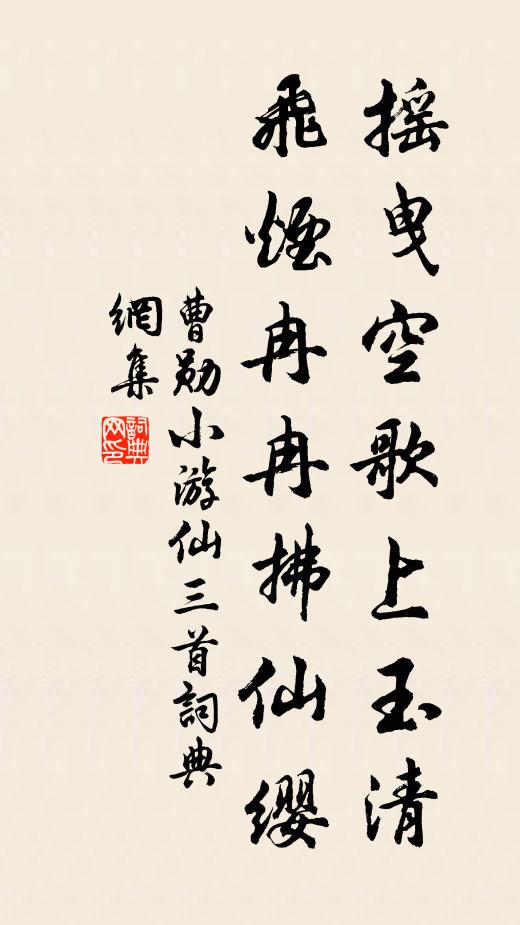 摇曳空歌上玉清
飛煙冉冉拂仙缨
曹勛小游仙三首詞典
網集
詞典网印